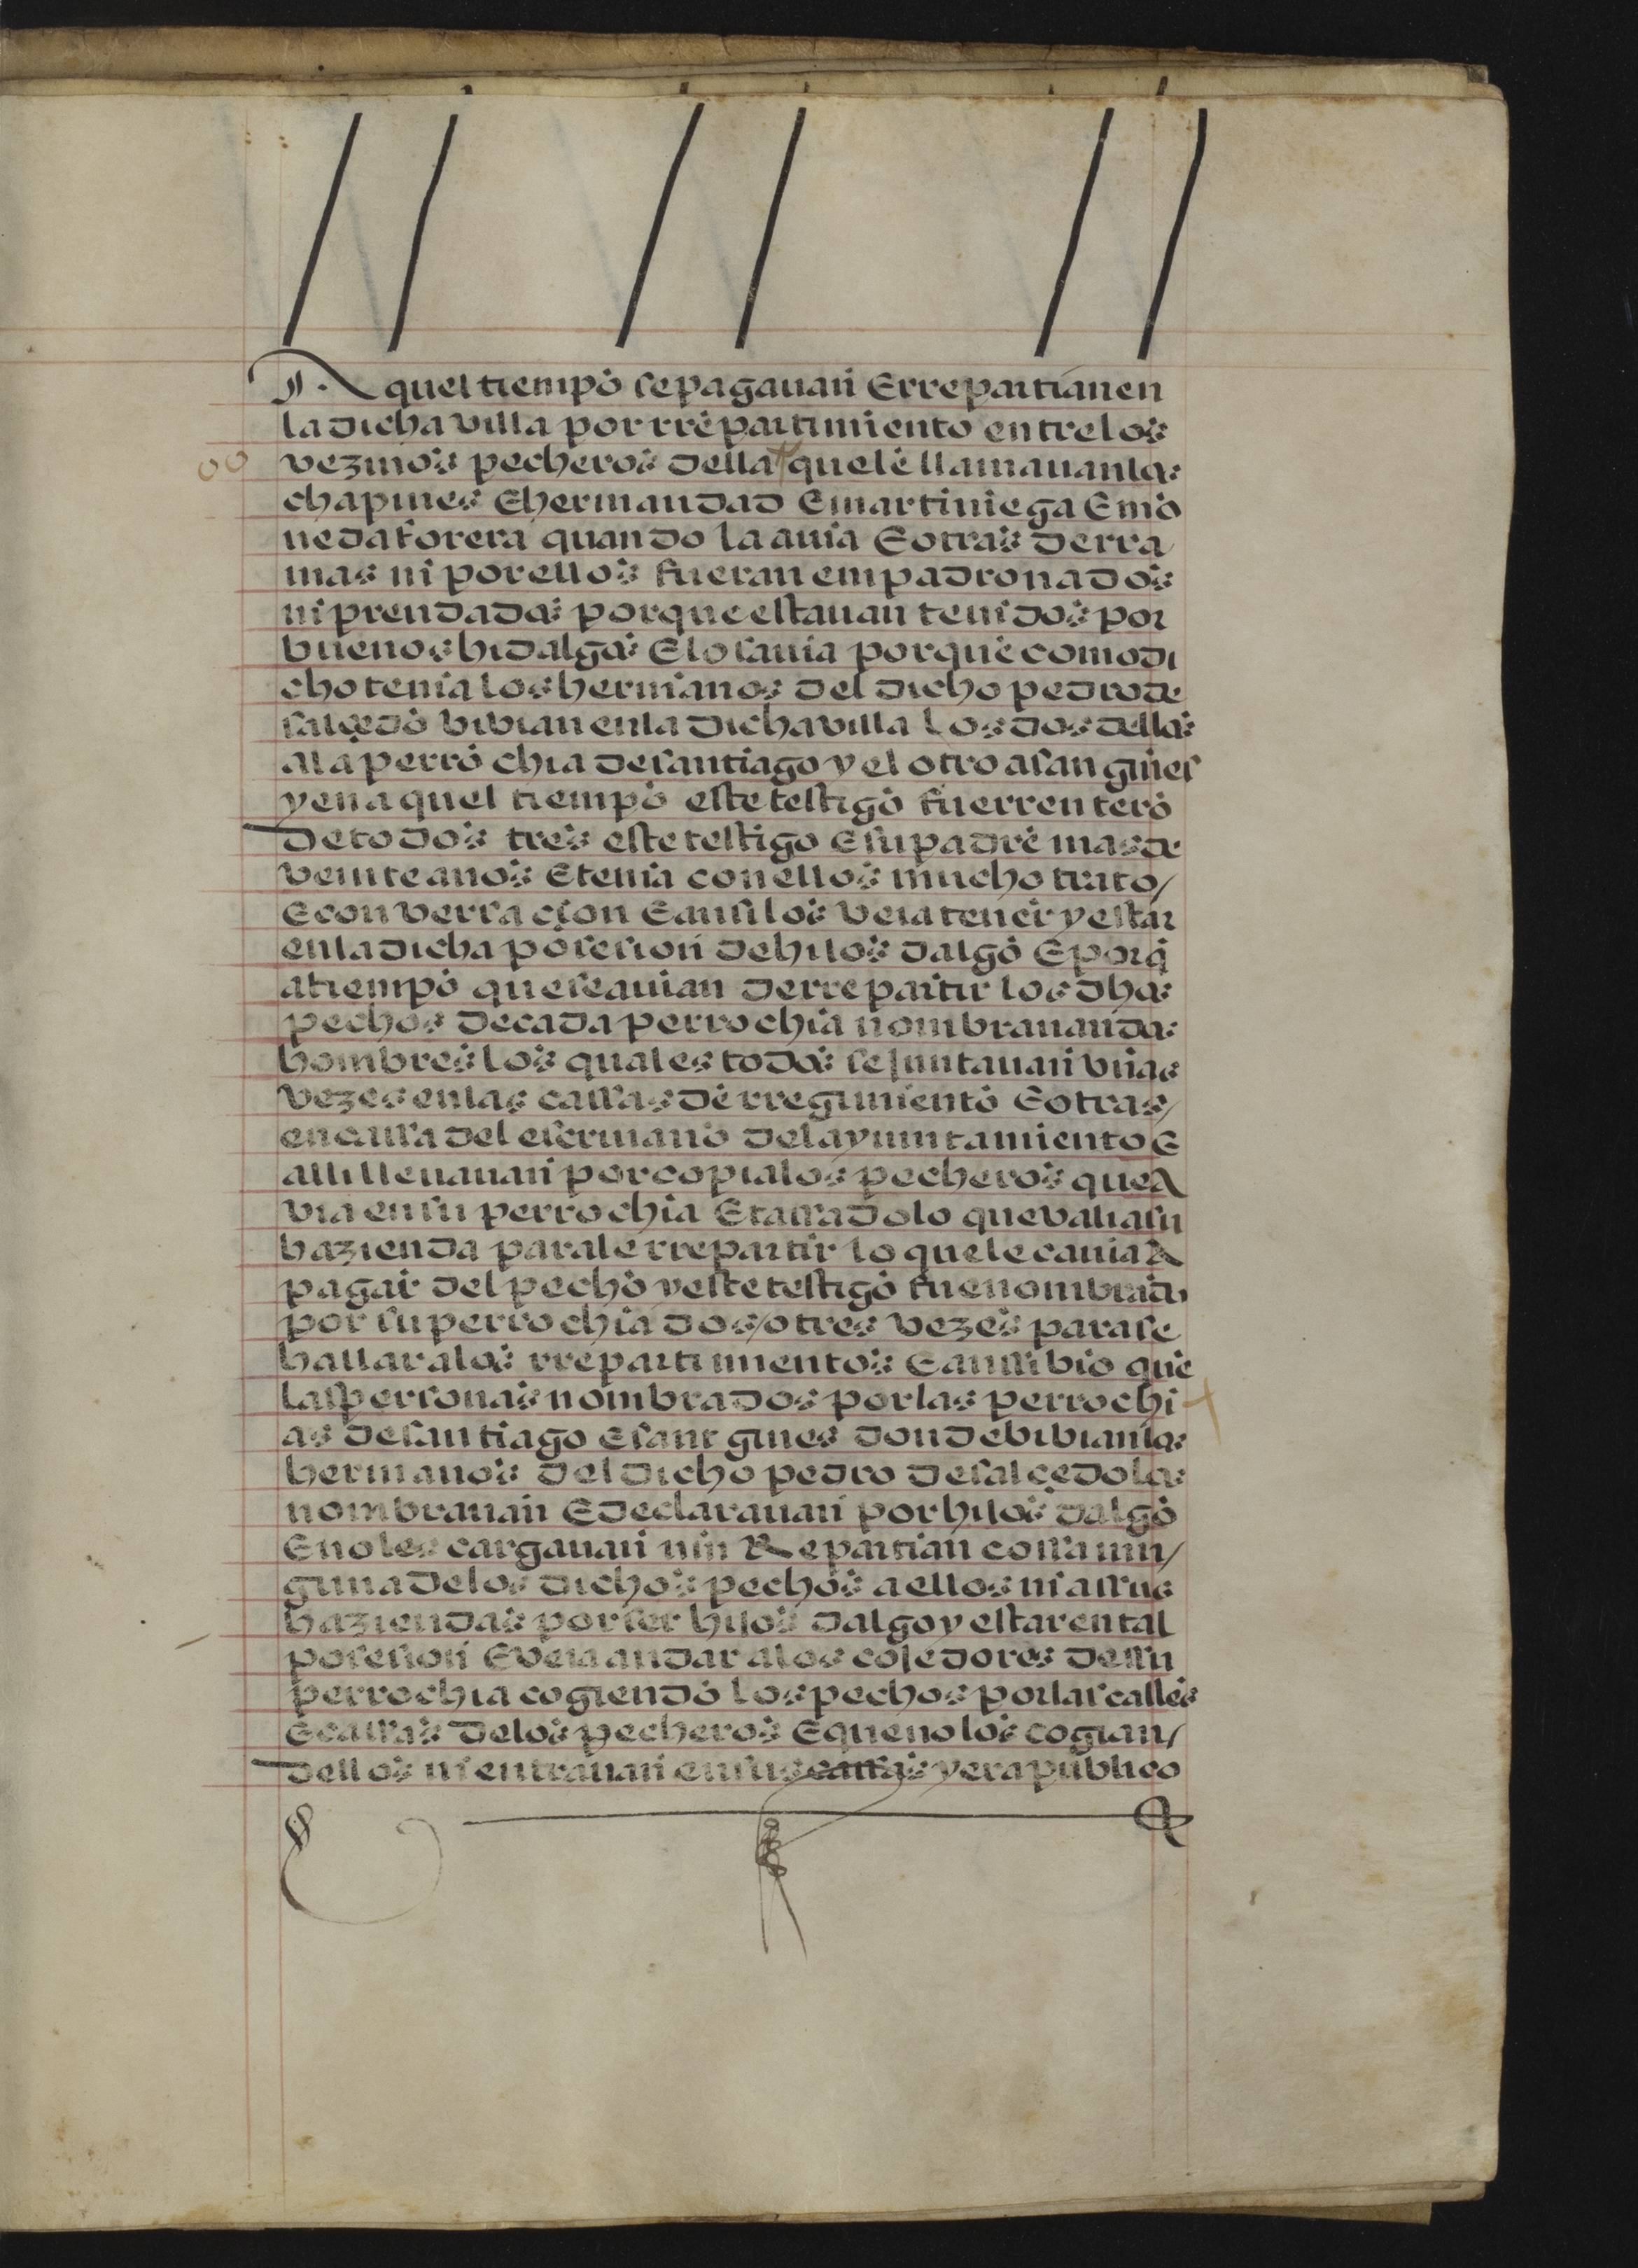 Aquel tiempo se pagauan E rrepartian en
la dicha villa por rrepartimiento entre los
vezinos pecheros della que le llamauan los
chapines E hermandad E martiniega E mo
neda forera quando la auia E otras derra
mas ni por ellos fueran empadronados
ni prendados porque estauan tenidos por
buenos hidalgos E lo sauia porque como di
cho tenia los hermanos del dicho pedro de
salçedo bibian en la dicha villa los dos dellos
a la perrochia de santiago y el otro a san gines
y en aquel tiempo este testigo fue rrentero
de todos tres este testigo E su padre mas de
veinte anos E tenia con ellos mucho trato/
E converssaçion E ansi los veia tener y estar
en la dicha posesion de hijos dalgo E porq
a tiempo que se auian de rrepartir los dhos
pechos de cada perrochia nombrauan dos
hombres los quales todos se juntauan vnas
vezes en las cassas de rregimiento E otras/
en cassa del escriuano del ayuntamiento E
alli lleuauan por copia los pecheros que a
via en su perrochia E tassado lo que valia su
hazienda para le rrepartir lo que le cauia a
pagar del pecho y este testigo fue nombrado
por su perrochia dos/o tres vezes para se
hallar a los rrepartimientos E anssi bio que
las personas nombrados por las perrochi
as de santiago E sant gines donde bibian los
hermanos del dicho pedro de salçedo los
nombrauan E declarauan por hijos dalgo
E no les cargauan nin Repartian cossa nin/
guna de los dichos pechos a ellos ni a ssus
haziendas por ser hijos dalgo y estar en tal
posesion E veia andar a los cojedores de ssu
perrochia cogiendo los pechos por las calles
E cassas de los pecheros E que no los cogian/
dellos ni entrauan en sus cassas y era publico